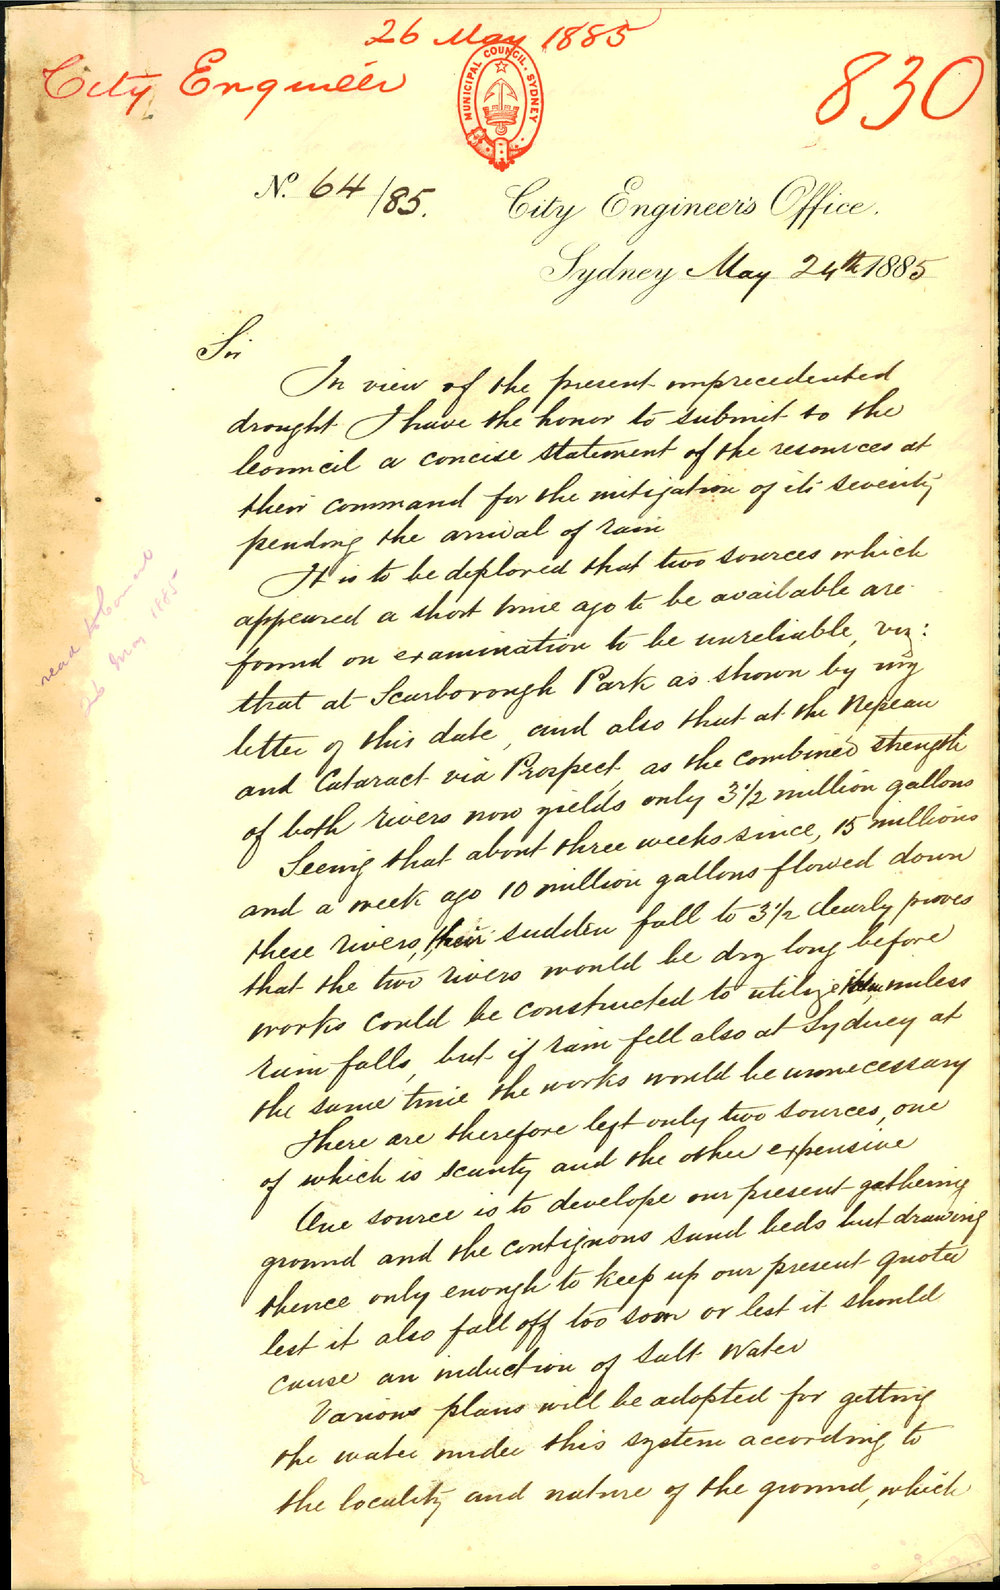 26 May 1885
City Engineer
830
MUNICIPAL COUNCIL. SYDNEY
No. 64/85. City Engineer's Office.
Sydney May 24th 1885
Sir
In view of the present unprecedented
drought I have the honor to submit to the
Council a concise statement of the resources at
their command for the mitigation of its severity
pending the arrival of rain
It is to be deplored that two sources which
appeared a short time ago to be available are
found on examination to be unreliable, viz:
that at Scarborough Park as shown by my
letter of this date, and also that at the Nepean
and Cataract via Prospect, as the combined strength
of both rivers now yields only 3½ million gallons
Seeing that about three weeks since, 15 millions
and a week ago 10 million gallons flowed down
these rivers, their sudden fall to 3½ clearly proves
that the two rivers would be dry long before
works could be constructed to utilize them unless
rain falls, but if rain fell also at Sydney at
the same time the works would be unnecessary
There are therefore left only two sources, one
of which is scanty and the other expensive
One source is to develope our present gathering
ground and the contiguous sand beds but drawing
thence only enough to keep up our present quota
lest it also fall off too soon or lest it should
cause an induction of salt water
Various plans will be adopted for getting
the water under this system according to
the locality and nature of the ground, which
read to Council
26 May 1885